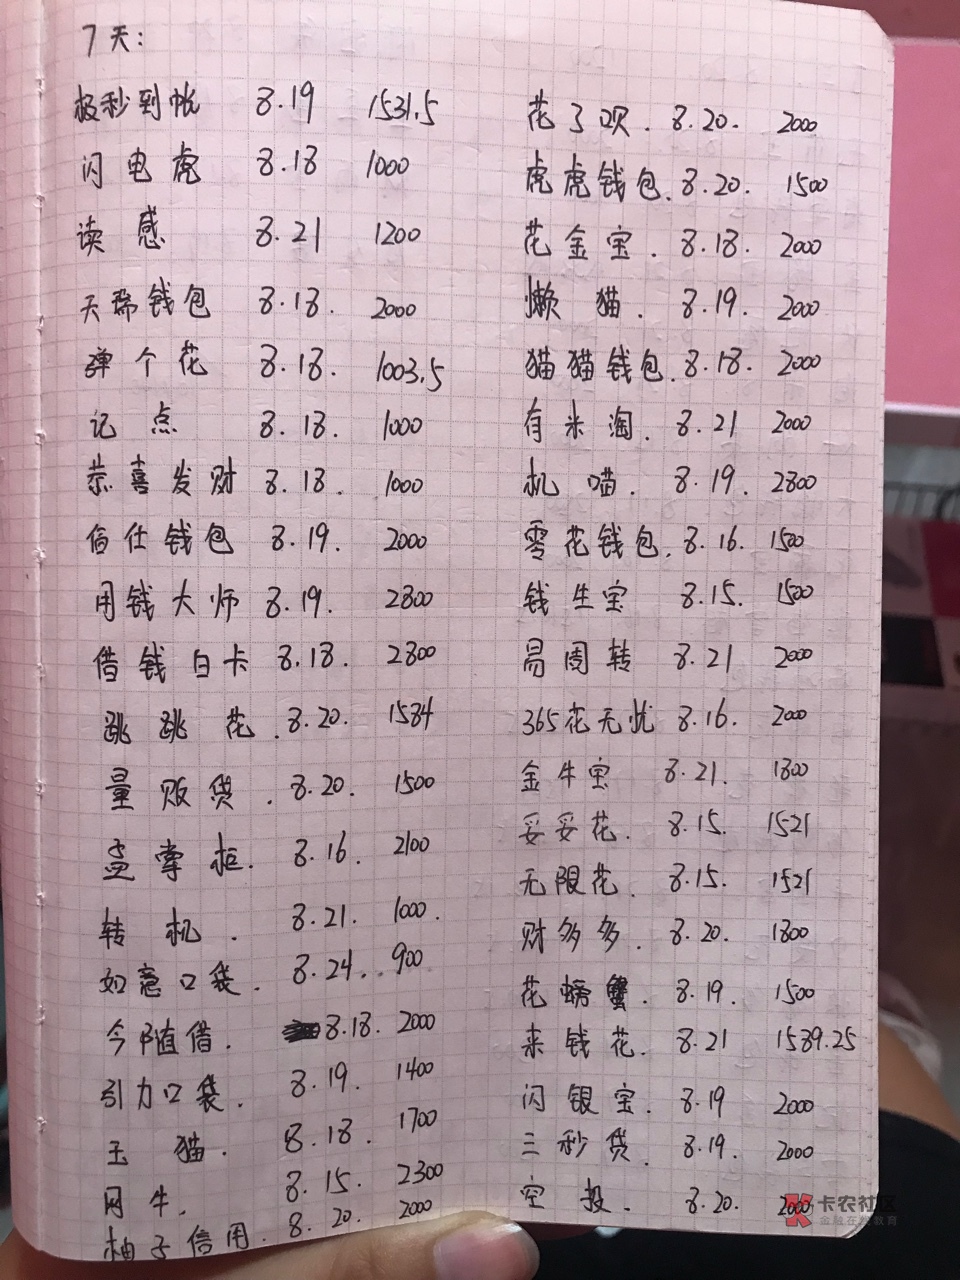 7天:
极秒到帐 8.19 1531.5
闪电虎 8.18 1000
读感 8.21 1200
天瑞钱包 8.18. 2000
弹个花 8.18. 1003.5
记点 8.18. 1000
恭喜发财 8.18. 1000
信仕钱包 8.19. 2000
用钱大师 8.19. 2800
借钱白卡 8.18. 2800
跳跳花. 8.20. 1584
量贩贷. 8.20. 1500
孟掌柜. 8.16. 2100
转机. 8.21. 1000.
如意口袋. 8.24.. 900
今随借. 8.18. 2000
引力口袋. 8.19. 1400
玉猫. 8.18. 1700
网牛. 8.15. 2300
柚子信用. 8.20. 2000
花了呗. 8.20. 2000
虎虎钱包. 8.20. 1500
花金宝. 8.18. 2000
懒猫. 8.19. 2000
猫猫钱包. 8.18. 2000
有米淘. 8.21 2000
机喵. 8.19. 2800
零花钱包. 8.16. 1500
钱生宝 8.15. 1500
易周转 8.21 2000
365花无忧 8.16. 2000
金牛宝 8.21. 1800
妥妥花. 8.15. 1521
无限花. 8.15. 1521
财多多. 8.20. 1800
花螃蟹. 8.19. 1500
来钱花. 8.21 1589.25
闪银宝. 8.19 2000
三秒贷. 8.19. 2000
空投. 8.20. 2000
卡农社区
金融在线教育